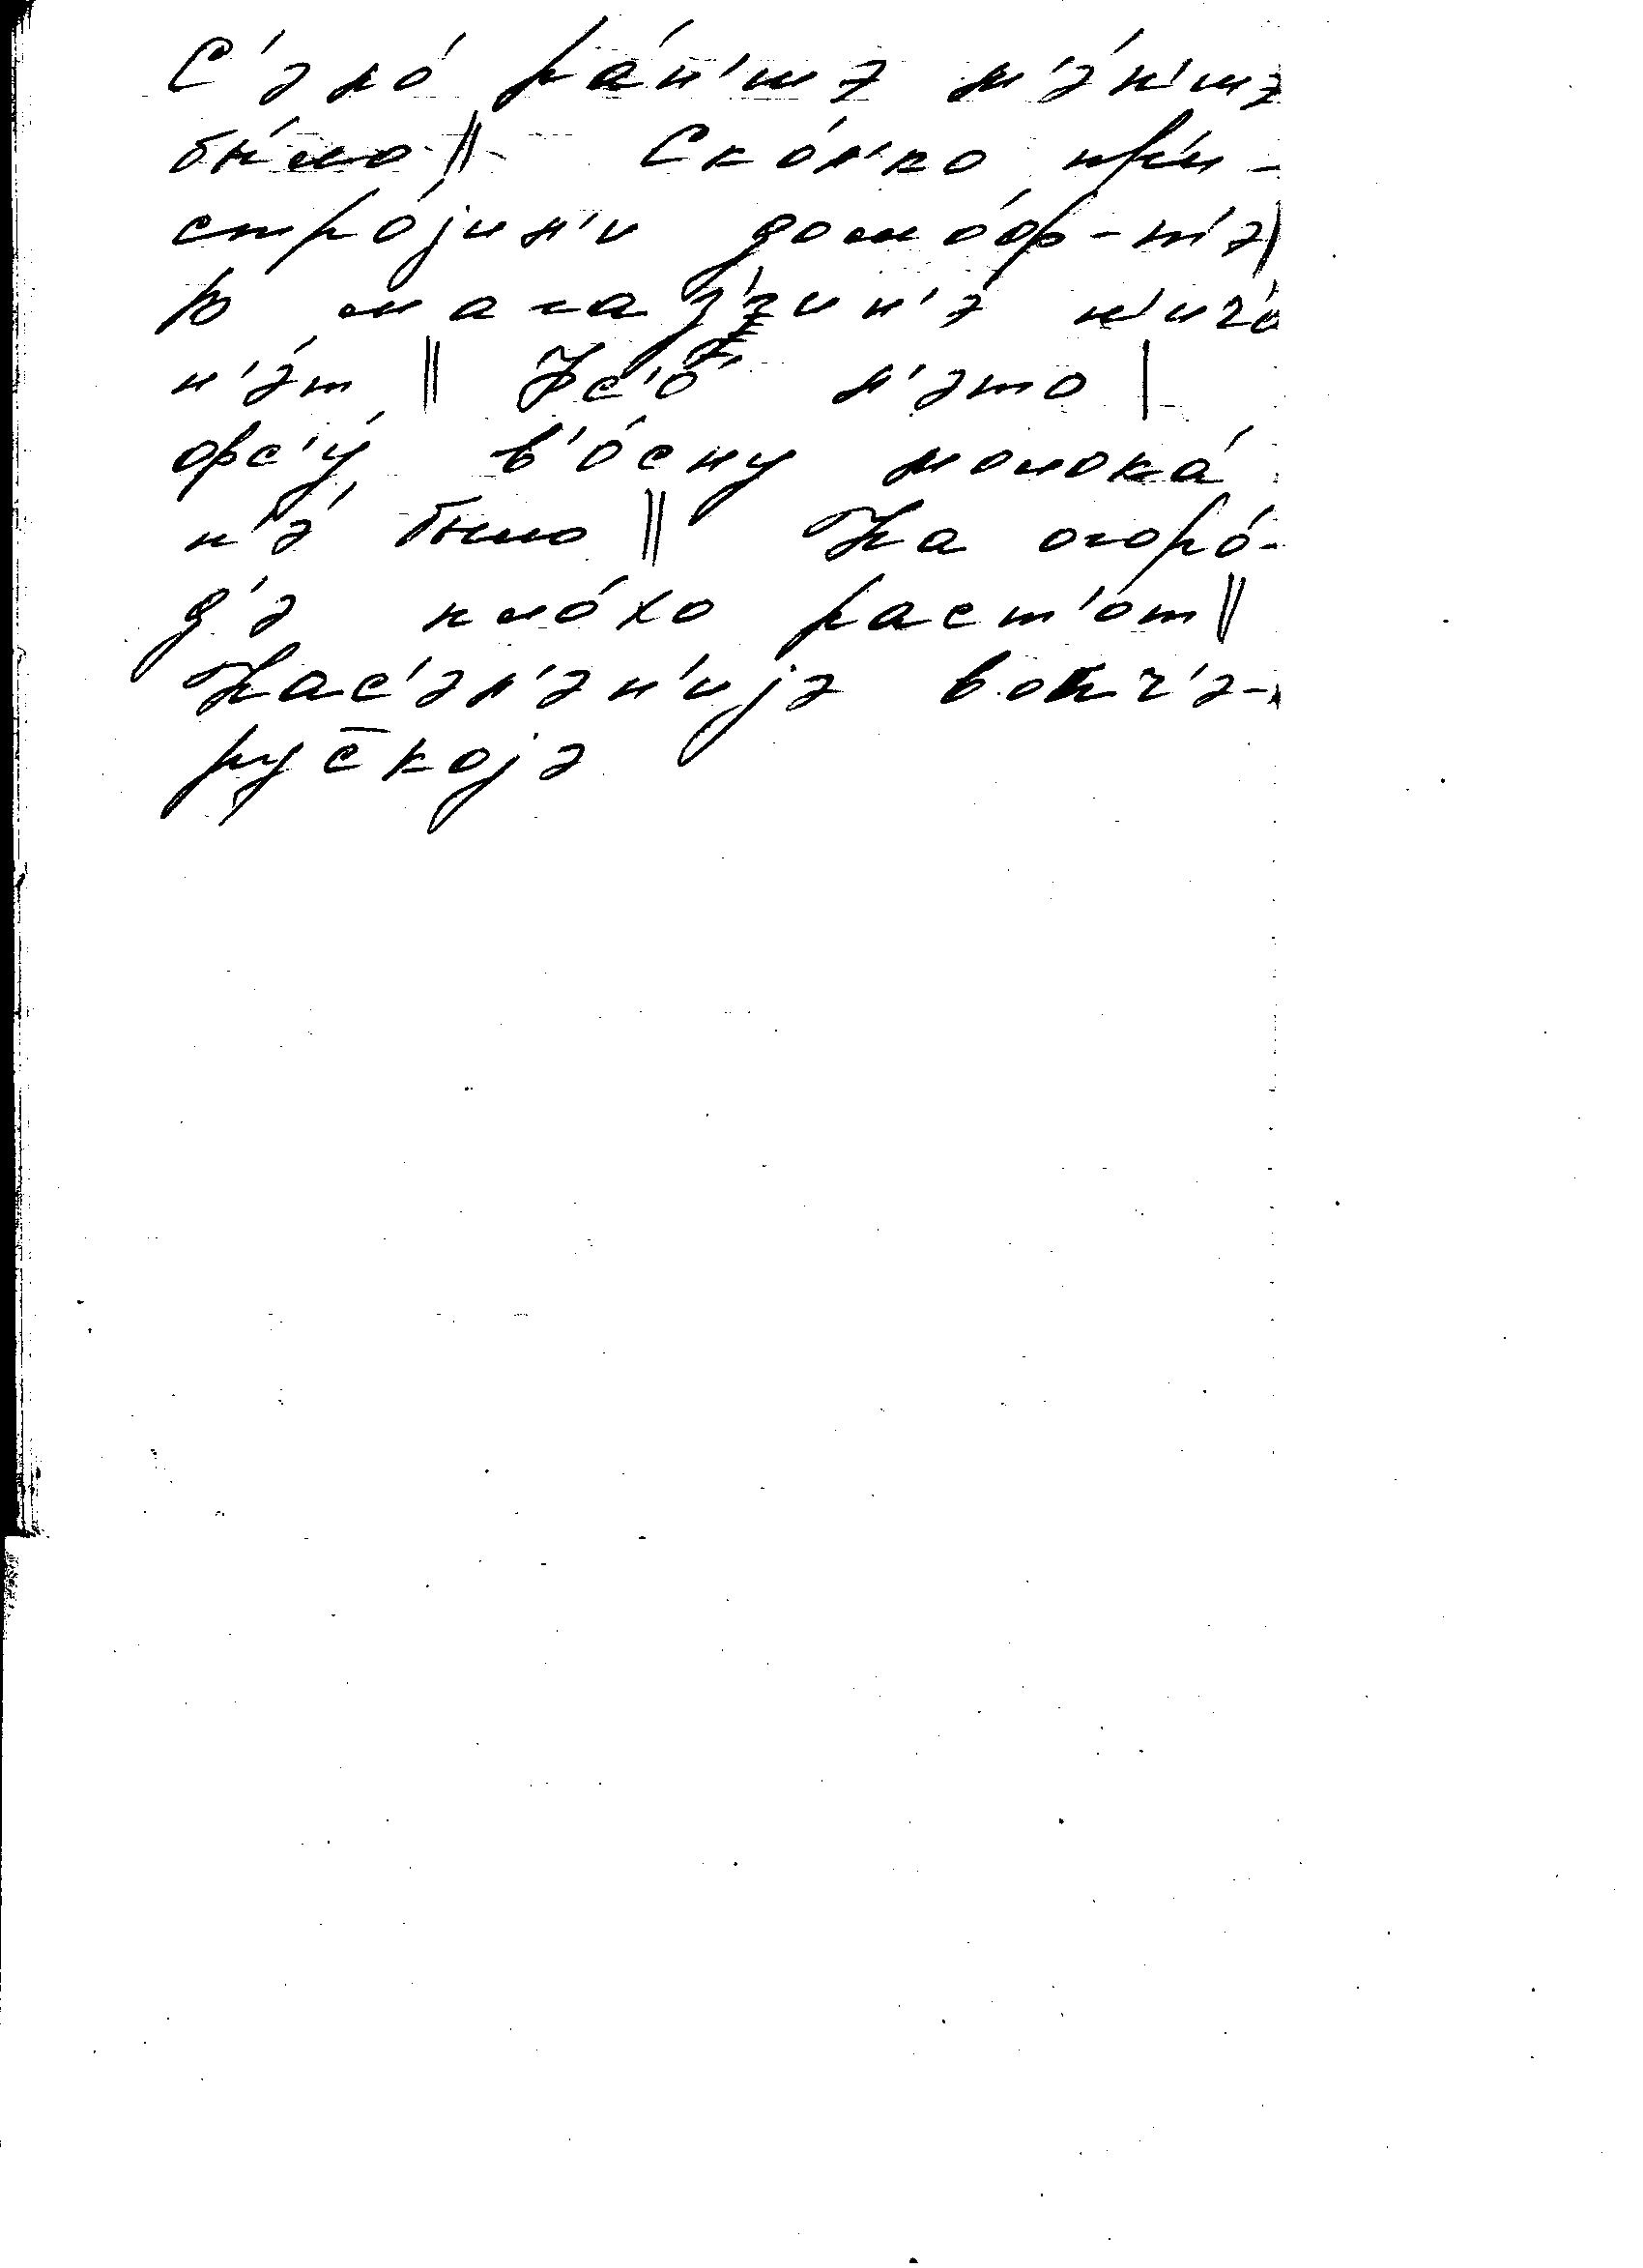 С'эло́ ра́н'шэ м'э́н'шэ
бы́ло ‖ Ско́л'ко при-
стро́јил'и домо́ф-т'э |
В магаз'ин'э н'ичо́
н'э́т ‖ Фс'о́ л'э́то |
фс'у́ в'о́сну молока́
н'э́ было ‖ На огоро́-
д'э пло́хо раст'о́т ‖
Нас'эл'э́н'ијэ вопч'э-
руск̄ојэ